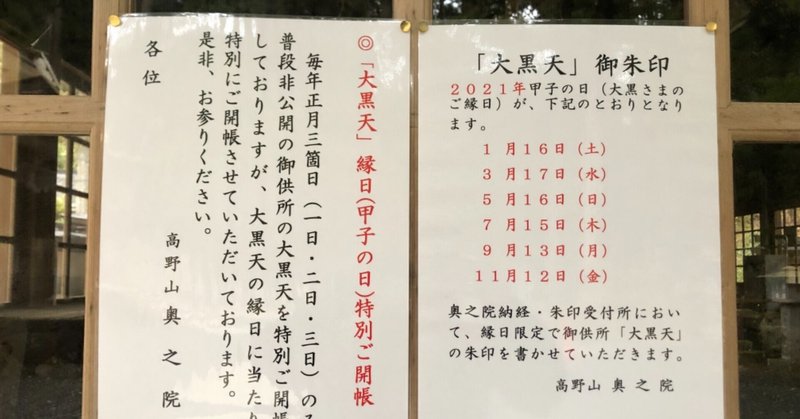 ◎「大黒天」縁日(甲子の日)特別ご開帳
毎年正月三箇日(一日・二日・三日)の
普段非公開の御供所の大黒天を特別ご開帳
しておりますが、大黒天の縁日に当たり
特別にご開帳させていただいております。
是非、お参りください。
高野山奥之院
各位
「大黒天」御朱印
2021年甲子の日(大黒さまの
ご縁日)が、下記のとおりとなり
ます。
1月16日(土)
3月17日(水)
5月16日(日)
7月15日(木)
9月13日(月)
11月12日(金)
奥之院納経・朱印受付所におい
て、縁日限定で御供所「大黒天」
の朱印を書かせていただきます。
高野山奥之院